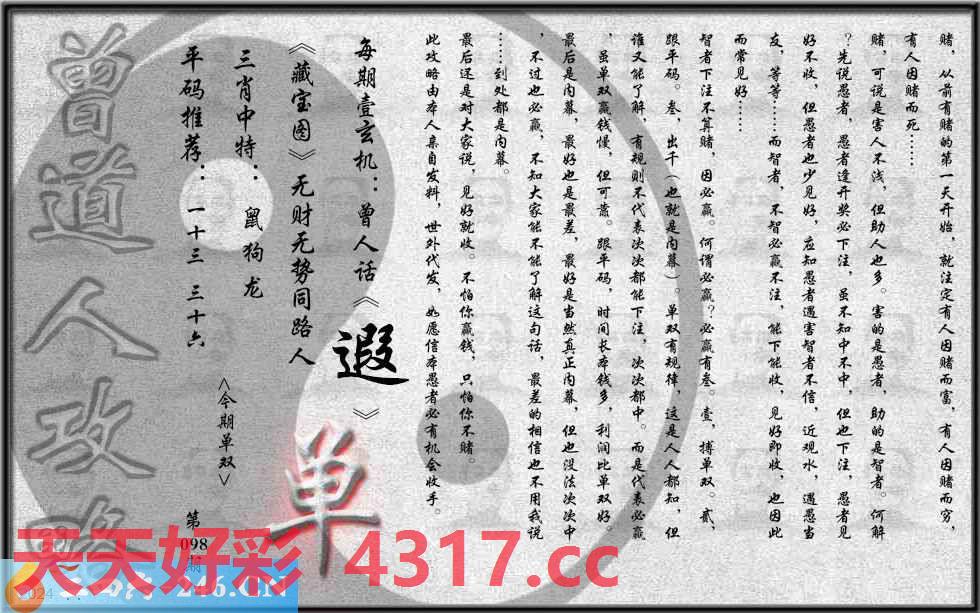 赌，从前有赌的第一天开始，就注定有人因赌而富，有人因赌而穷，
有人因赌而死……
赌，可说是害人不浅，但助人也多。害的是愚者，助的是智者。何解
？先说愚者，愚者逢开奖必下注，虽不知中不中，但也下注，愚者见
好不收，但愚者也少见好，应知愚者遇害智者不信，近观水，遇愚当
友，等等……而智者，不智必赢不注，能下能收，见好即收，也因此
而常见好……
智者下注不算赌，因必赢。何谓必赢？必赢有叁。壹，搏单双。贰，
跟平码。叁，出千（也就是内幕）。单双有规律，这是人人都知，但
谁又能了解，有规则不代表次次都能下注，次次都中。而是代表必赢
，虽单双赢钱慢，但可靠。跟平码，时间长本钱多，利润比单双好。
最后是内幕，最好也是最差，最好是当然真正内幕，但也没法次次中
，不过也必赢，不知大家能不能了解这句话，最差的相信也不用我说
……到处都是内幕。
最后还是对大家说，见好就收。不怕你赢钱，只怕你不赌。
此攻略由本人亲自发料，世外代发，如愿信本愚者必有机会收手。
每期壹玄机：曾人话《遐》
《藏宝图》无财无势同路人
三肖中特：鼠狗龙
平码推荐：一十三 三十六
<今期单双>
单
第
098
期
曾道人攻略
天天好彩 4317.cc
246.CN